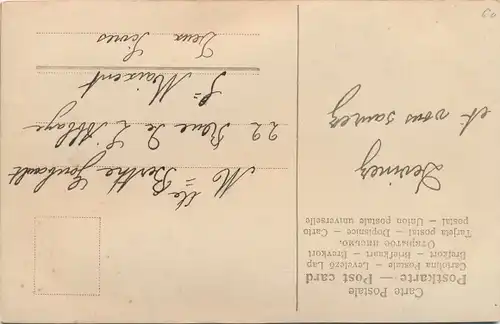 Carte Postale
Postkarte — Post card
Cartolina Postale - Levelező Lap
Brefkort - Briefkaart - Brevkort
Открытое письмо.
Tarjeta postal - Dopisnice - Carto
postal - Union postale universelle
Devinez
et vous saurez
Mlle Berthe Goubault
22 Rue de l'Abbaye
St Maixent
Deux Sèvres